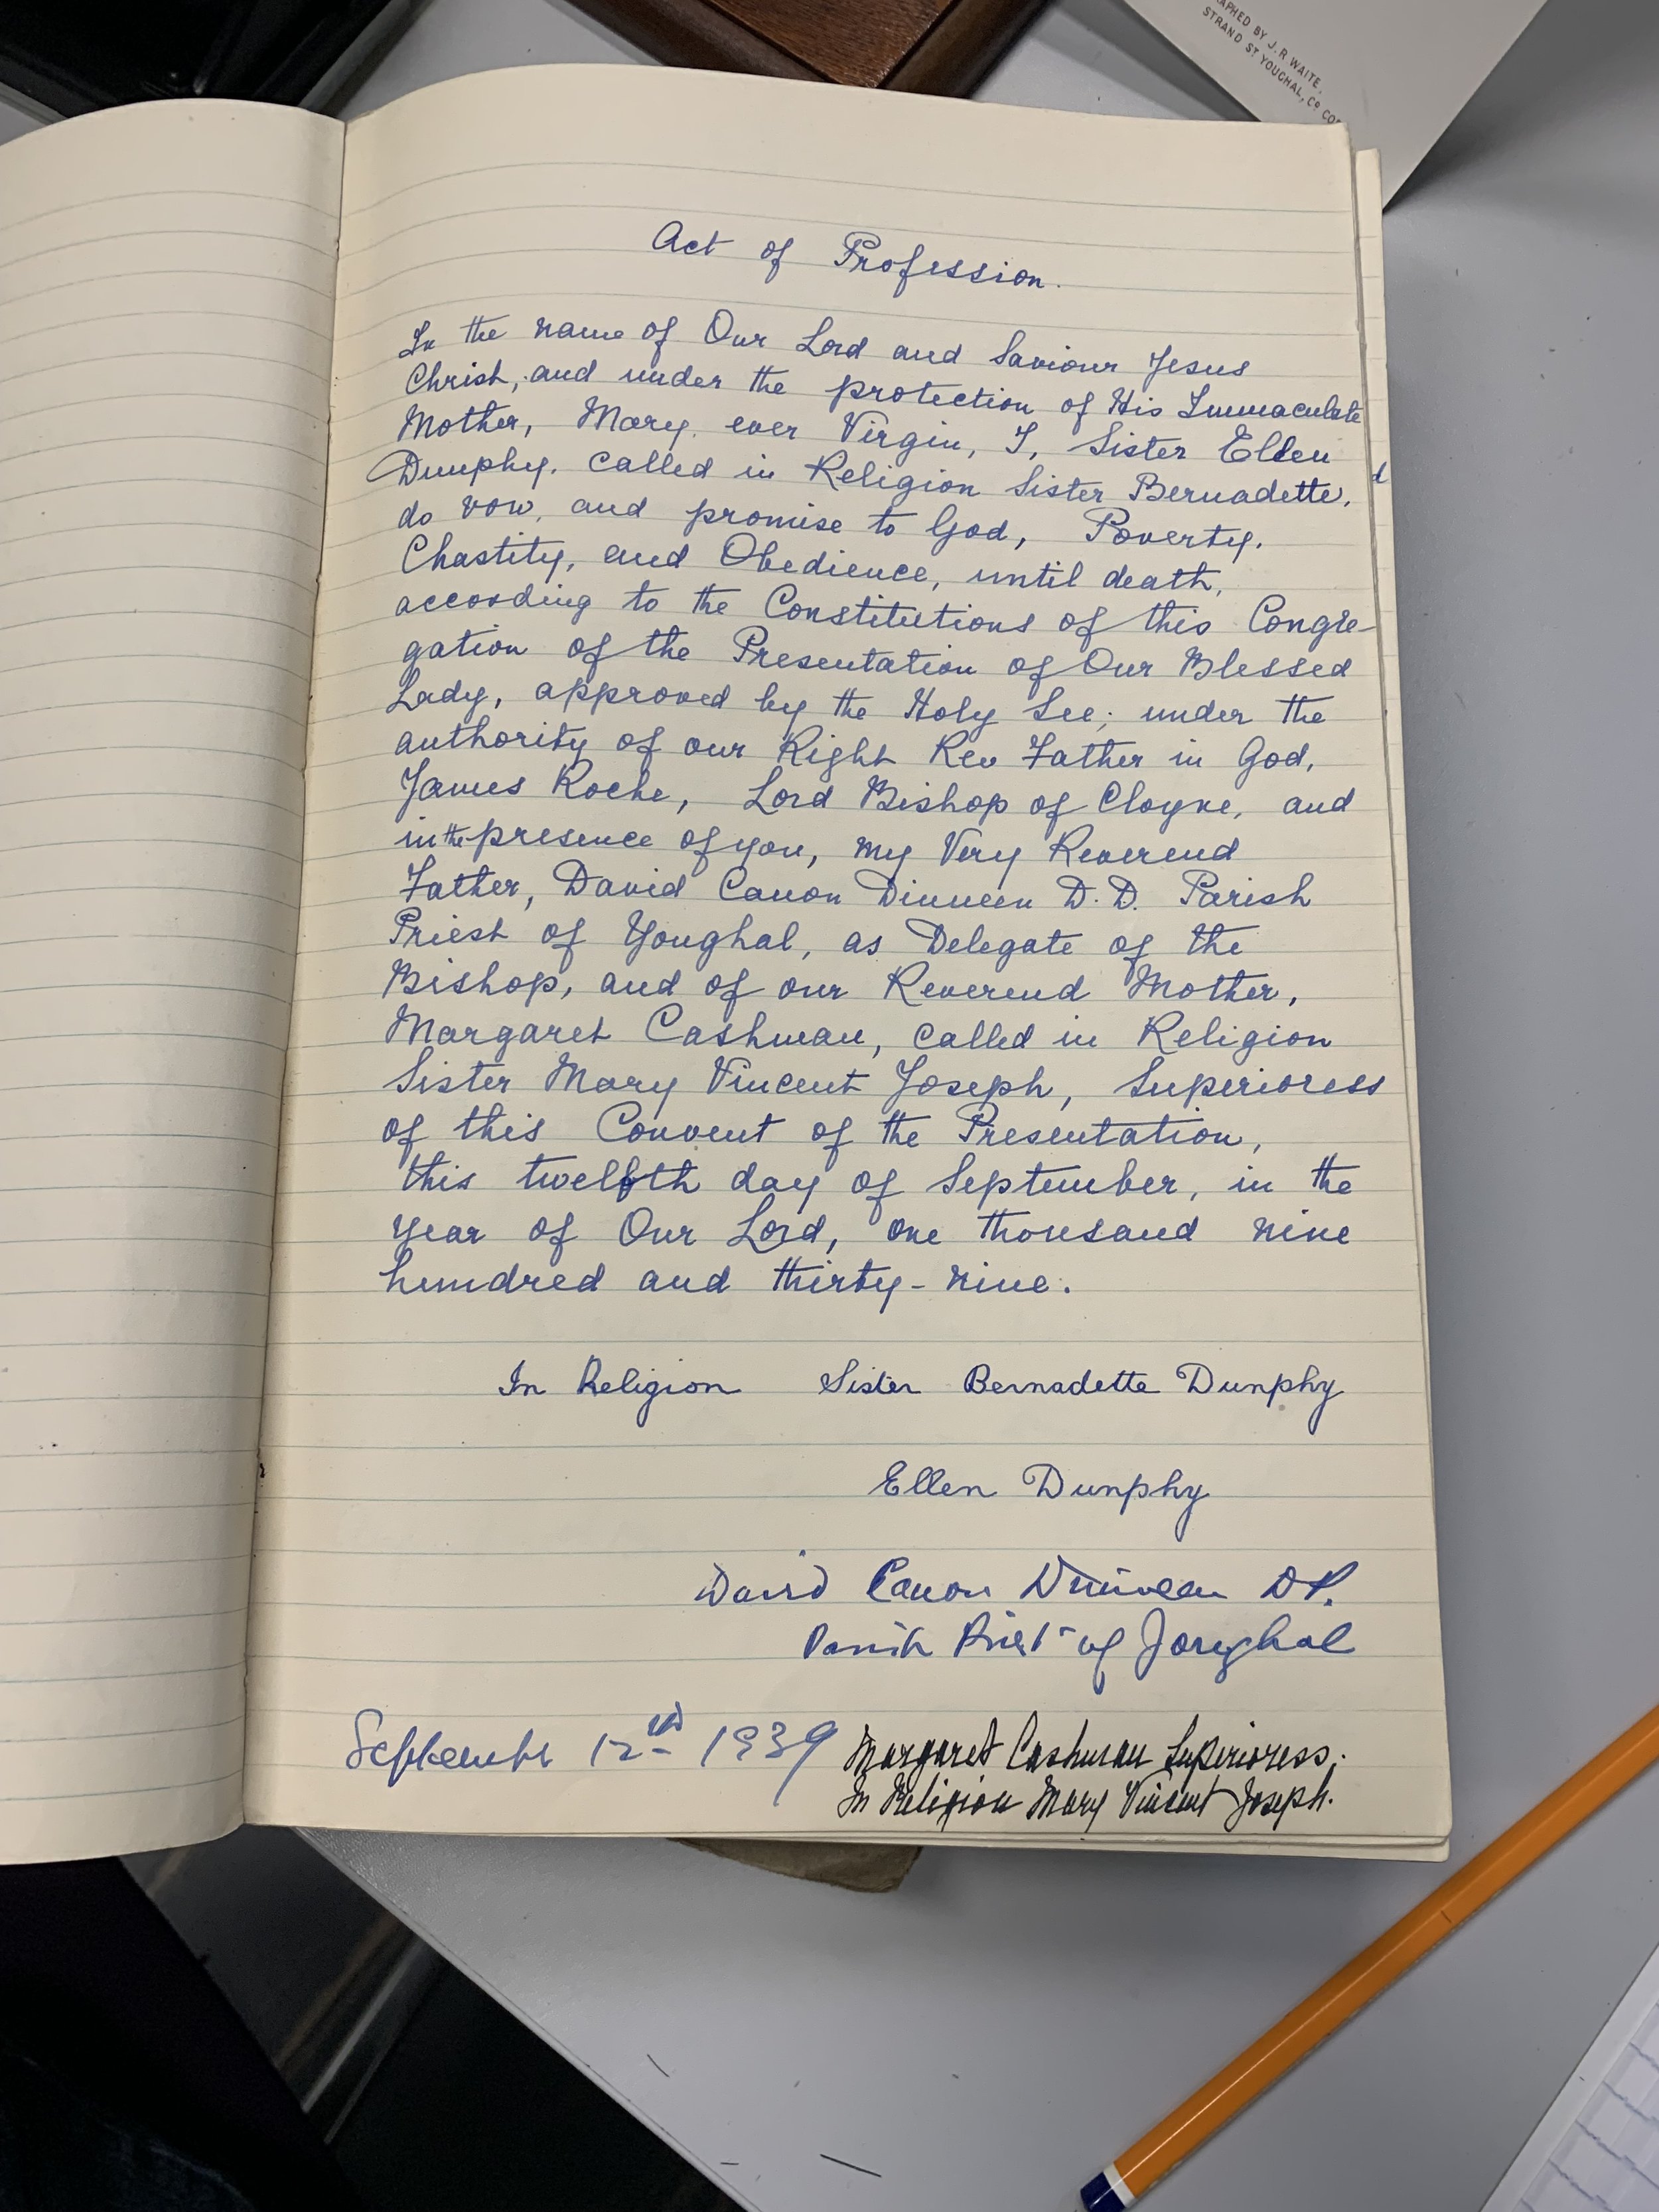 APHED BY J. R. WAITE,
STRAND ST YOUGHAL, Co CO
Act of Profession.
In the name of Our Lord and Saviour Jesus
Christ, and under the protection of His Immaculate
Mother, Mary, ever Virgin, I, Sister Ellen
Dunphy, called in Religion Sister Bernadette,
do vow, and promise to God, Poverty,
Chastity, and Obedience, until death,
according to the Constitutions of this Congre-
gation of the Presentation of Our Blessed
Lady, approved by the Holy See; under the
authority of our Right Rev Father in God,
James Roche, Lord Bishop of Cloyne, and
in the presence of you, my Very Reverend
Father, David Canon Dinneen D.D. Parish
Priest of Youghal, as Delegate of the
Bishop, and of our Reverend Mother,
Margaret Cashman, called in Religion
Sister Mary Vincent Joseph, Superioress
of this Convent of the Presentation,
this twelfth day of September, in the
year of Our Lord, one thousand nine
hundred and thirty-nine.
In Religion Sister Bernadette Dunphy
Ellen Dunphy
David Canon Dinneen
Parish Priest of Youghal
September 12th 1939
Margaret Cashman Superioress.
In Religion Mary Vincent Joseph.